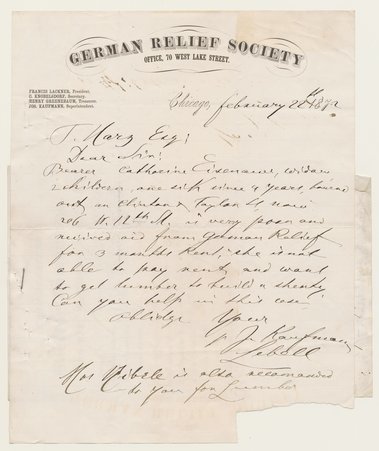 GERMAN RELIEF SOCIETY
OFFICE, 70 WEST LAKE STREET.
FRANCIS LACKNER, President,
C. KNOBELSDORF, Secretary,
HENRY GREENEBAUM, Treasurer,
JOS. KAUFMANN, Superintendent.
Chicago, february 28th 1872
Esq;
Dear Sir!
Bearer Catharine Eisenauer, widow
children, one sick since 4 years, burned
out on Clinton & Taylor St now
206 W. 12th St, is very poor and
received aid from German Relief
for 3 months Rent; she is not
able to pay rent, and want
to get lumber to build a shanty
Can you help in this case
oblidge Your
J. Kaufmann
Mrs is also recomanded
to you for Lumber